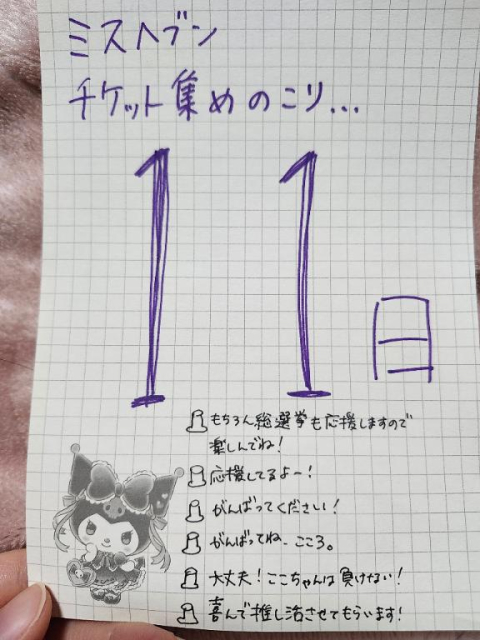 ミスヘブン
チケット集めのこり...
11日
もちろん総選挙も応援しますので
楽しんでね!
応援してるよー!
がんばってください!
がんばってね、こころ。
大丈夫!ここちゃんは負けない!
喜んで推し活させてもらいます!